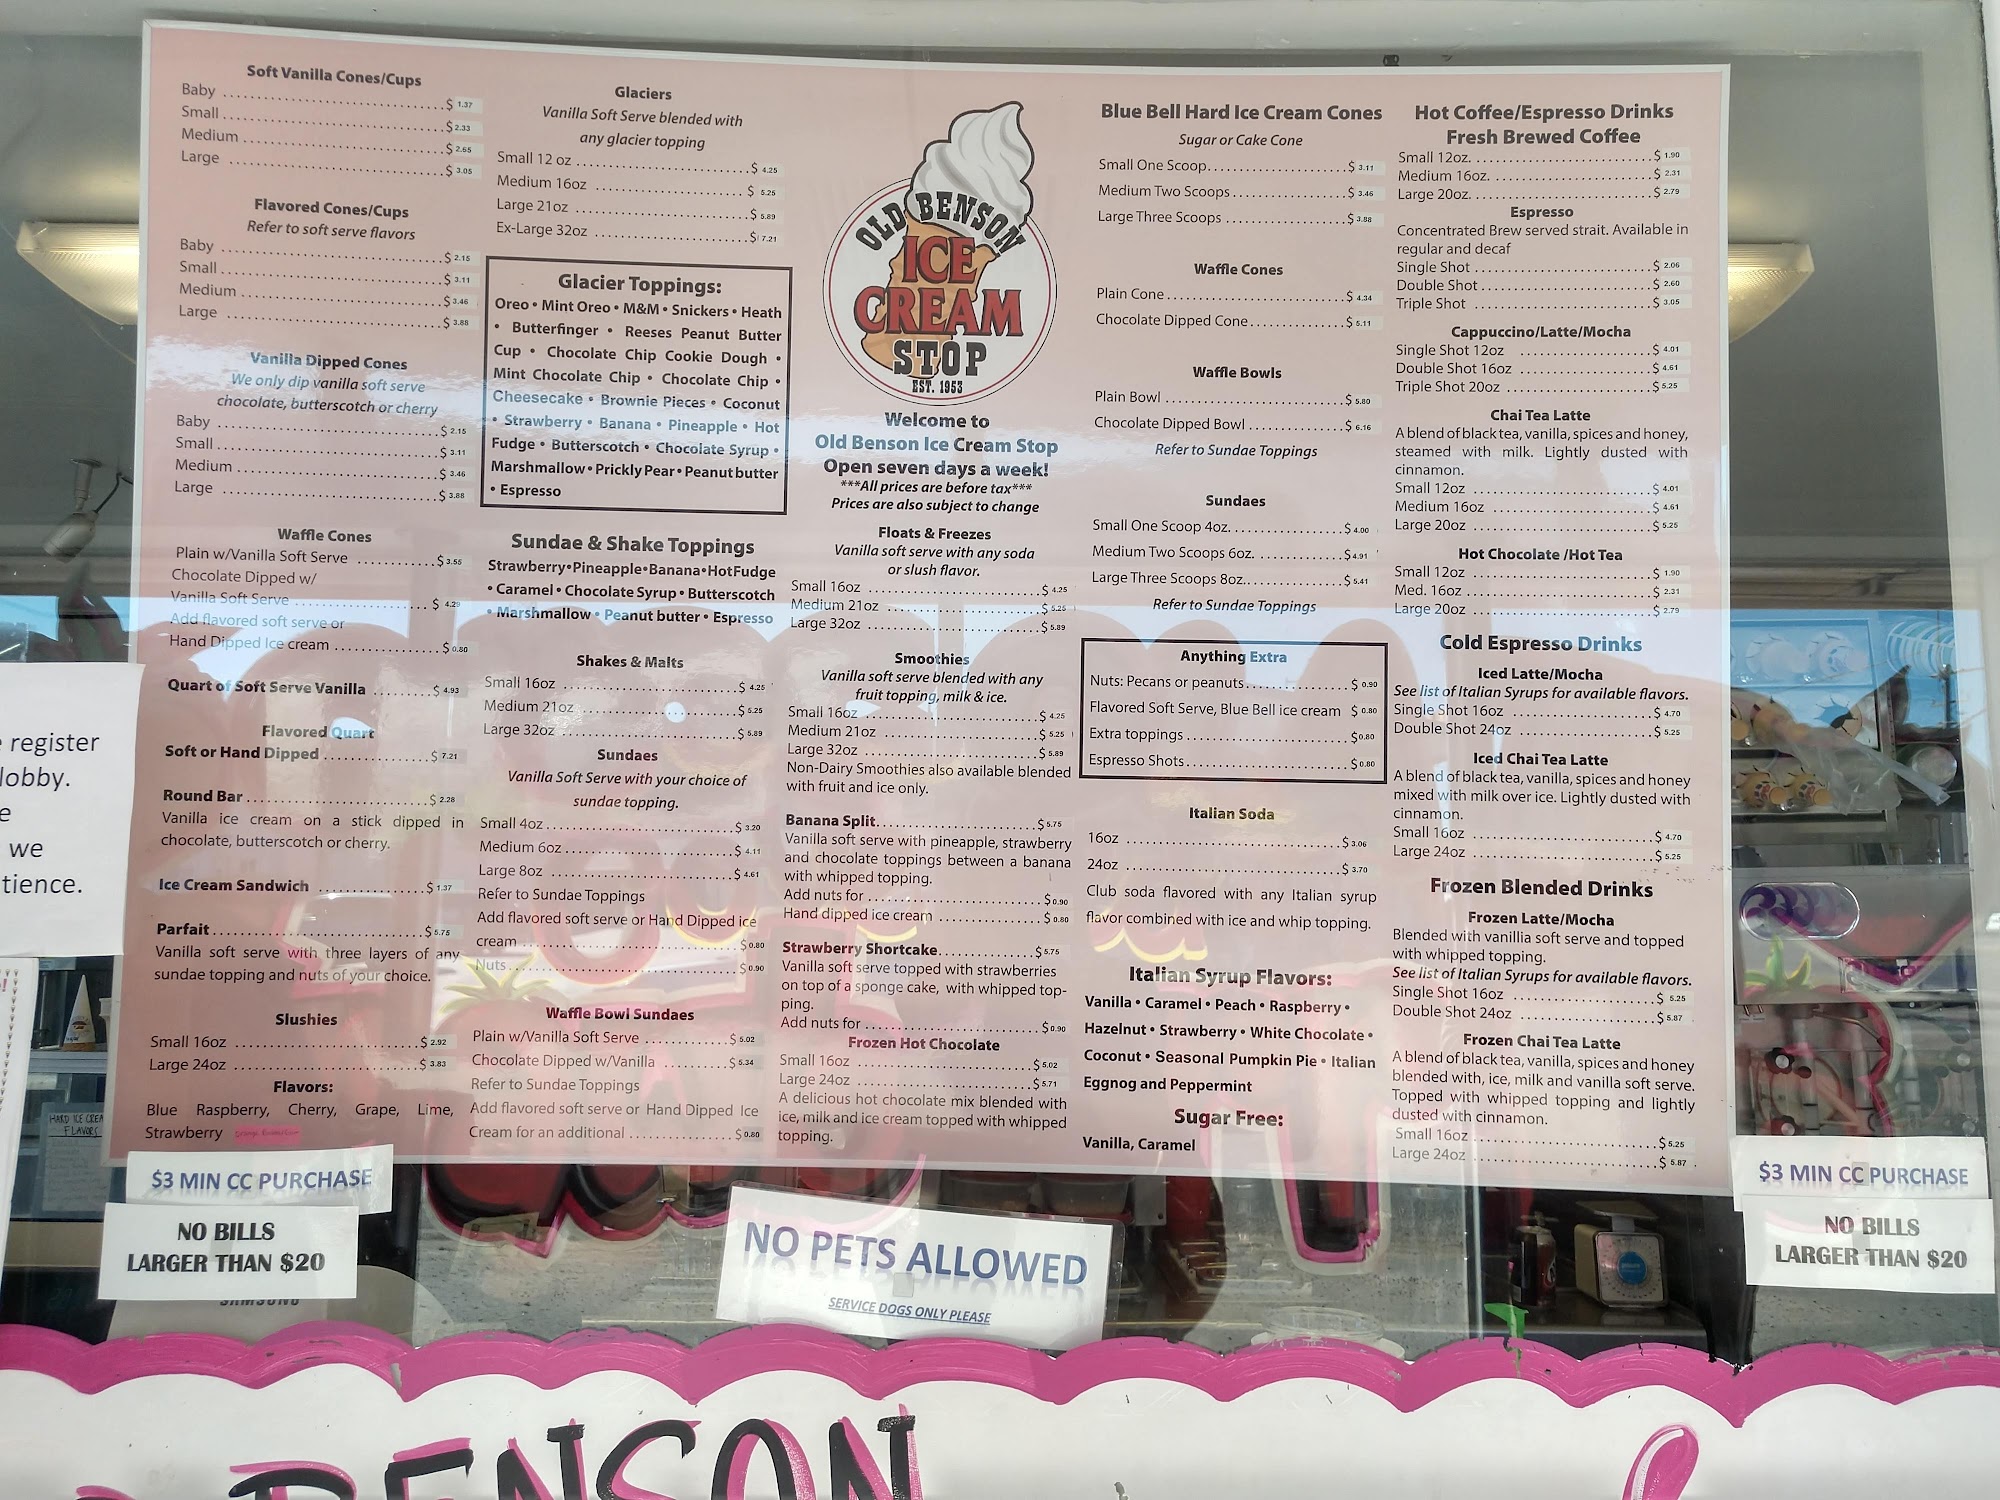 Soft Vanilla Cones/Cups
Baby $ 1.37
Small $ 2.33
Medium $ 2.65
Large $ 3.05
Flavored Cones/Cups
Refer to soft serve flavors
Baby $ 2.15
Small $ 3.11
Medium $ 3.46
Large $ 3.88
Vanilla Dipped Cones
We only dip vanilla soft serve
chocolate, butterscotch or cherry
Baby $ 2.15
Small $ 3.11
Medium $ 3.46
Large $ 3.88
Waffle Cones
Plain w/Vanilla Soft Serve $ 3.55
Chocolate Dipped w/
Vanilla Soft Serve $ 4.29
Add flavored soft serve or
Hand Dipped Ice cream $ 0.80
Quart of Soft Serve Vanilla $ 4.93
Flavored Quart
Soft or Hand Dipped $ 7.21
Round Bar $ 2.28
Vanilla ice cream on a stick dipped in
chocolate, butterscotch or cherry.
Ice Cream Sandwich $ 1.37
Parfait $ 5.75
Vanilla soft serve with three layers of any
sundae topping and nuts of your choice.
Slushies
Small 16oz $ 2.92
Large 24oz $ 3.83
Flavors:
Blue Raspberry, Cherry, Grape, Lime,
Strawberry
Glaciers
Vanilla Soft Serve blended with
any glacier topping
Small 12 oz $ 4.25
Medium 16oz $ 5.25
Large 21oz $ 5.89
Ex-Large 32oz $ 7.21
Glacier Toppings:
Oreo • Mint Oreo • M&M • Snickers • Heath
• Butterfinger • Reeses Peanut Butter
Cup • Chocolate Chip Cookie Dough •
Mint Chocolate Chip • Chocolate Chip •
Cheesecake • Brownie Pieces • Coconut
• Strawberry • Banana • Pineapple • Hot
Fudge • Butterscotch • Chocolate Syrup •
Marshmallow • Prickly Pear • Peanut butter
• Espresso
Sundae & Shake Toppings
Strawberry•Pineapple•Banana•HotFudge
• Caramel • Chocolate Syrup • Butterscotch
• Marshmallow • Peanut butter • Espresso
Shakes & Malts
Small 16oz $ 4.25
Medium 21oz $ 5.25
Large 32oz $ 5.89
Sundaes
Vanilla Soft Serve with your choice of
sundae topping.
Small 4oz $ 3.20
Medium 6oz $ 4.11
Large 8oz $ 4.61
Refer to Sundae Toppings
Add flavored soft serve or Hand Dipped ice
cream $ 0.80
Nuts $ 0.90
Waffle Bowl Sundaes
Plain w/Vanilla Soft Serve $ 5.02
Chocolate Dipped w/Vanilla $ 5.34
Refer to Sundae Toppings
Add flavored soft serve or Hand Dipped Ice
Cream for an additional $ 0.80
OLD BENSON
ICE
CREAM
STOP
EST. 1953
Welcome to
Old Benson Ice Cream Stop
Open seven days a week!
***All prices are before tax***
Prices are also subject to change
Floats & Freezes
Vanilla soft serve with any soda
or slush flavor.
Small 16oz $ 4.25
Medium 21oz $ 5.25
Large 32oz $ 5.89
Smoothies
Vanilla soft serve blended with any
fruit topping, milk & ice.
Small 16oz $ 4.25
Medium 21oz $ 5.25
Large 32oz $ 5.89
Non-Dairy Smoothies also available blended
with fruit and ice only.
Banana Split $ 5.75
Vanilla soft serve with pineapple, strawberry
and chocolate toppings between a banana
with whipped topping.
Add nuts for $ 0.90
Hand dipped ice cream $ 0.80
Strawberry Shortcake $ 5.75
Vanilla soft serve topped with strawberries
on top of a sponge cake, with whipped top-
ping.
Add nuts for $ 0.90
Frozen Hot Chocolate
Small 16oz $ 5.02
Large 24oz $ 5.71
A delicious hot chocolate mix blended with
ice, milk and ice cream topped with whipped
topping.
Blue Bell Hard Ice Cream Cones
Sugar or Cake Cone
Small One Scoop $ 3.11
Medium Two Scoops $ 3.46
Large Three Scoops $ 3.88
Waffle Cones
Plain Cone $ 4.34
Chocolate Dipped Cone $ 5.11
Waffle Bowls
Plain Bowl $ 5.80
Chocolate Dipped Bowl $ 6.16
Refer to Sundae Toppings
Sundaes
Small One Scoop 4oz. $ 4.00
Medium Two Scoops 6oz. $ 4.91
Large Three Scoops 8oz. $ 5.41
Refer to Sundae Toppings
Anything Extra
Nuts: Pecans or peanuts $ 0.90
Flavored Soft Serve, Blue Bell ice cream $ 0.80
Extra toppings $ 0.80
Espresso Shots $ 0.80
Italian Soda
16oz $ 3.06
24oz $ 3.70
Club soda flavored with any Italian syrup
flavor combined with ice and whip topping.
Italian Syrup Flavors:
Vanilla • Caramel • Peach • Raspberry •
Hazelnut • Strawberry • White Chocolate •
Coconut • Seasonal Pumpkin Pie • Italian
Eggnog and Peppermint
Sugar Free:
Vanilla, Caramel
Hot Coffee/Espresso Drinks
Fresh Brewed Coffee
Small 12oz. $ 1.90
Medium 16oz. $ 2.31
Large 20oz. $ 2.79
Espresso
Concentrated Brew served strait. Available in
regular and decaf
Single Shot $ 2.06
Double Shot $ 2.60
Triple Shot $ 3.05
Cappuccino/Latte/Mocha
Single Shot 12oz $ 4.01
Double Shot 16oz $ 4.61
Triple Shot 20oz $ 5.25
Chai Tea Latte
A blend of black tea, vanilla, spices and honey,
steamed with milk. Lightly dusted with
cinnamon.
Small 12oz $ 4.01
Medium 16oz $ 4.61
Large 20oz $ 5.25
Hot Chocolate /Hot Tea
Small 12oz $ 1.90
Med. 16oz $ 2.31
Large 20oz $ 2.79
Cold Espresso Drinks
Iced Latte/Mocha
See list of Italian Syrups for available flavors.
Single Shot 16oz $ 4.70
Double Shot 24oz $ 5.25
Iced Chai Tea Latte
A blend of black tea, vanilla, spices and honey
mixed with milk over ice. Lightly dusted with
cinnamon.
Small 16oz $ 4.70
Large 24oz $ 5.25
Frozen Blended Drinks
Frozen Latte/Mocha
Blended with vanillia soft serve and topped
with whipped topping.
See list of Italian Syrups for available flavors.
Single Shot 16oz $ 5.25
Double Shot 24oz $ 5.87
Frozen Chai Tea Latte
A blend of black tea, vanilla, spices and honey
blended with, ice, milk and vanilla soft serve.
Topped with whipped topping and lightly
dusted with cinnamon.
Small 16oz $ 5.25
Large 24oz $ 5.87
register
lobby.
we
tience.
HARD ICE CREA
FLAVORS
$3 MIN CC PURCHASE
NO BILLS
LARGER THAN $20
SAMSUNG
NO PETS ALLOWED
SERVICE DOGS ONLY PLEASE
$3 MIN CC PURCHASE
NO BILLS
LARGER THAN $20
BENSON